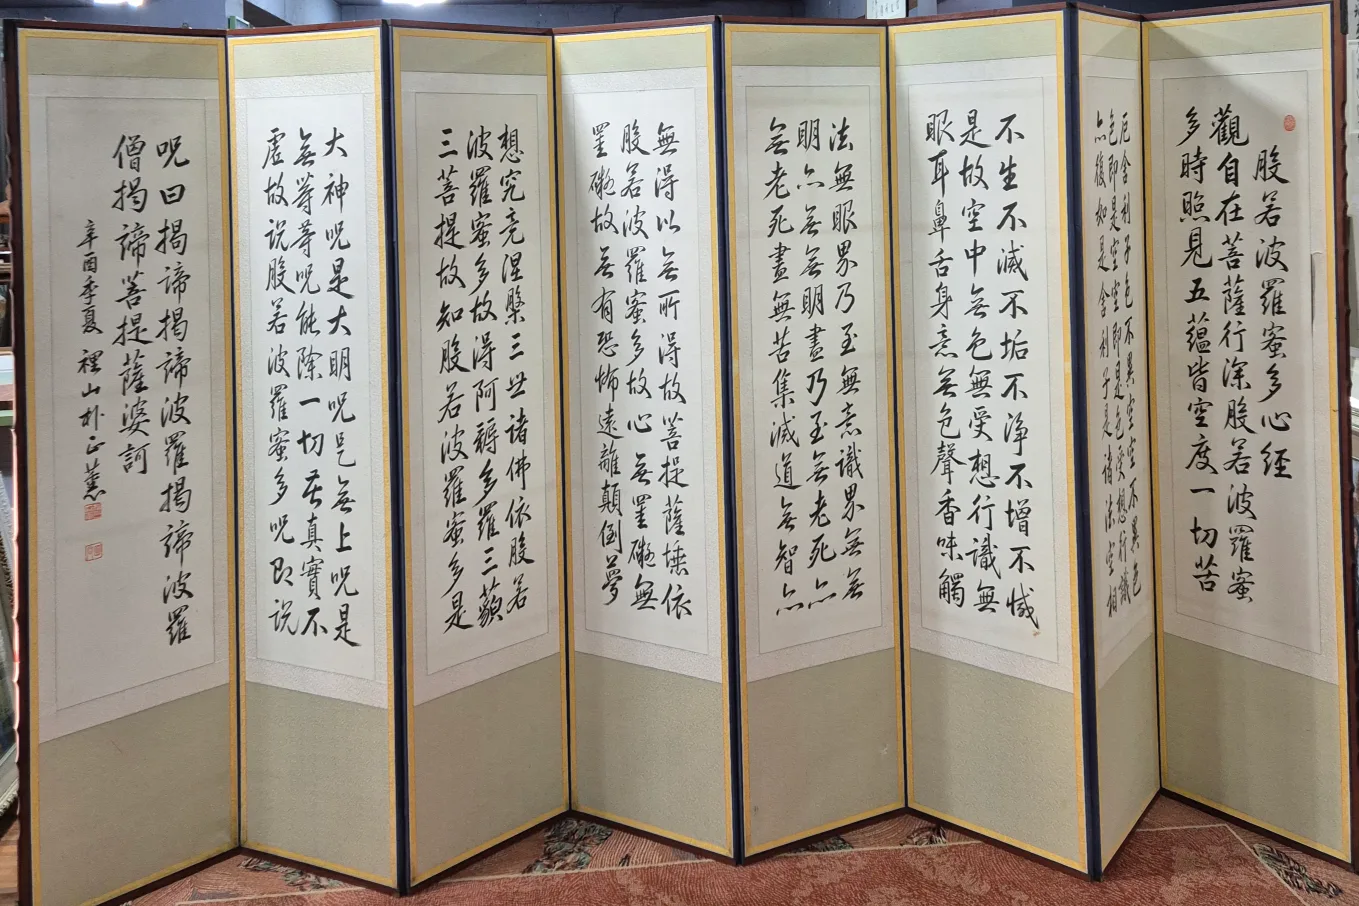 般若波羅蜜多心経
觀自在菩薩行深般若波羅蜜
多時照見五蘊皆空度一切苦
厄舍利子色不異空空不異色
色即是空空即是色受想行識
亦復如是舍利子是諸法空相
不生不滅不垢不淨不增不減
是故空中无色無受想行識無
眼耳鼻舌身意无色聲香味觸
法無眼界乃至無意識界無无
明亦无無明盡乃至無老死亦
无老死盡無苦集滅道无智亦
無得以无所得故菩提薩埵依
般若波羅蜜多故心無罣礙無
罣礙故无有恐怖遠離顛倒夢
想究竟涅槃三世諸佛依般若
波羅蜜多故得阿耨多羅三藐
三菩提故知般若波羅蜜多是
大神呪是大明呪是无上呪是
无等等呪能除一切苦真實不
虛故说般若波羅蜜多呪即说
呪曰揭諦揭諦波羅揭諦波羅
僧揭諦菩提薩婆訶
辛酉季夏 裡山朴正薰